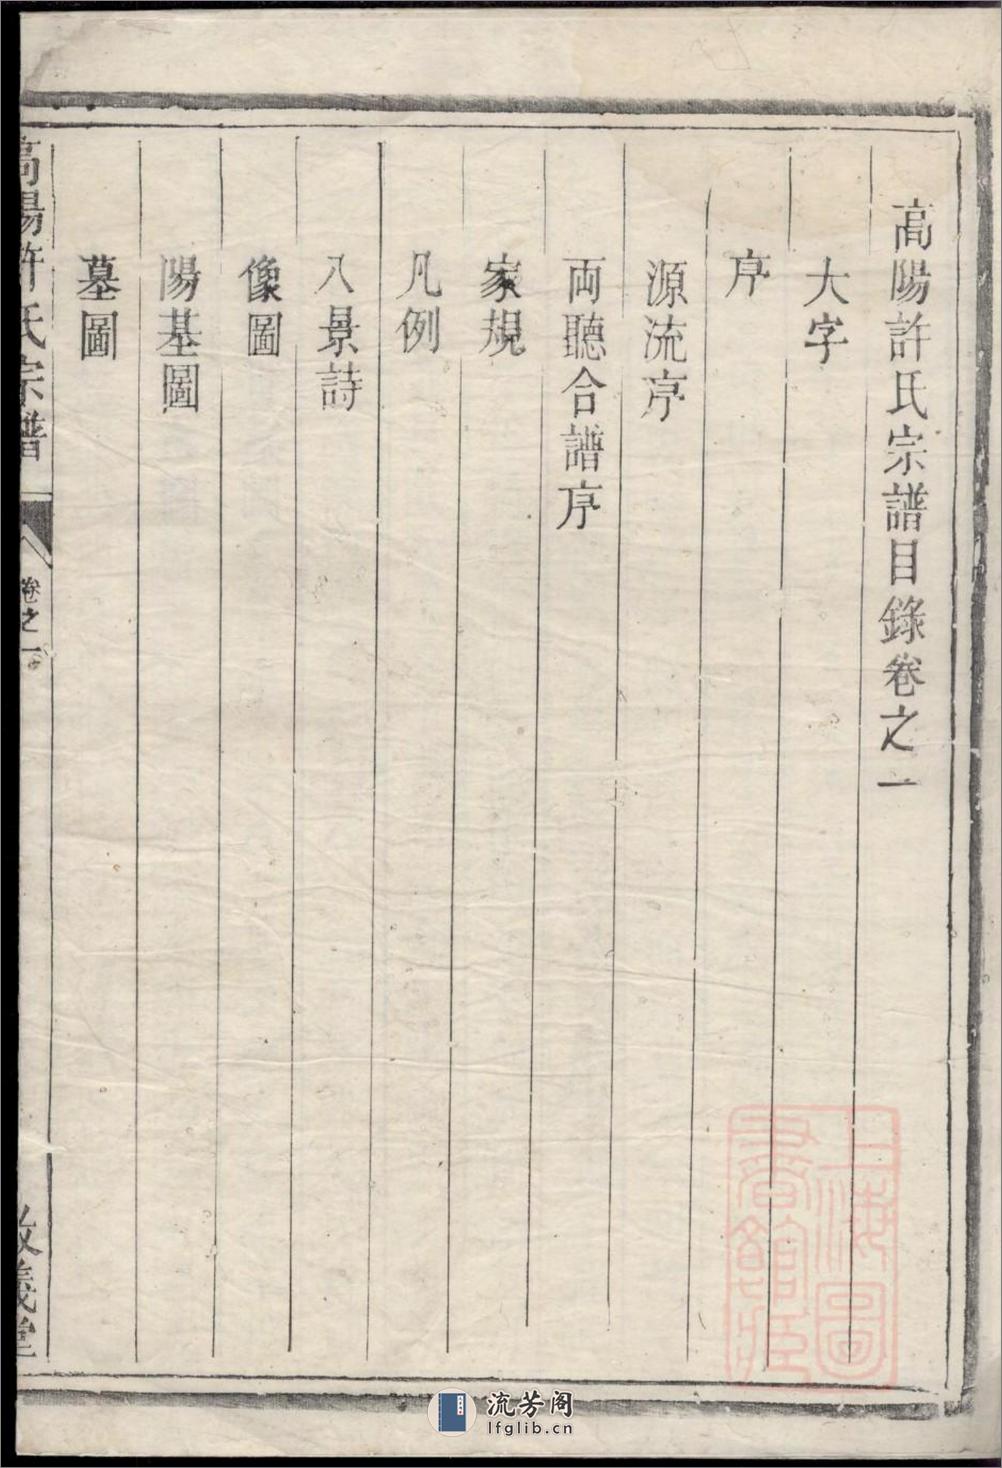 高陽許氏宗譜目錄卷之一
大字
序
源流序
両聽合譜序
家規
凡例
八景詩
像圖
陽基圖
墓圖
高陽許氏宗譜
卷之一
義堂
上海圖
書館藏
流芳阁
lfglib.cn